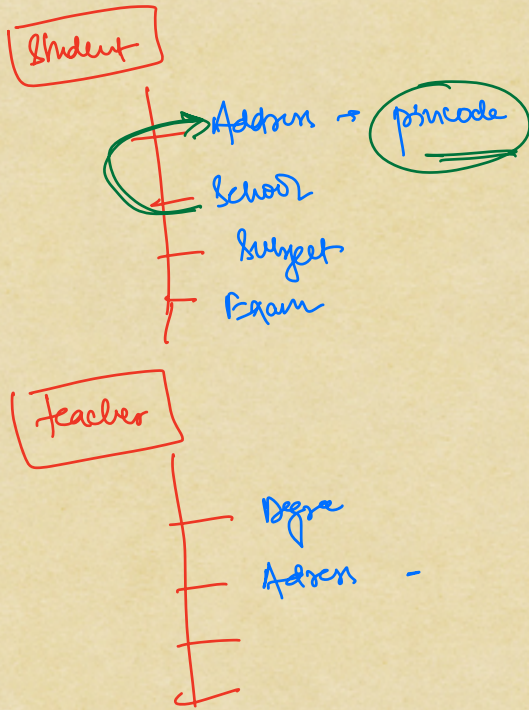 Student
Address → pincode
School
Subject
Exam
teacher
Degree
Adress -